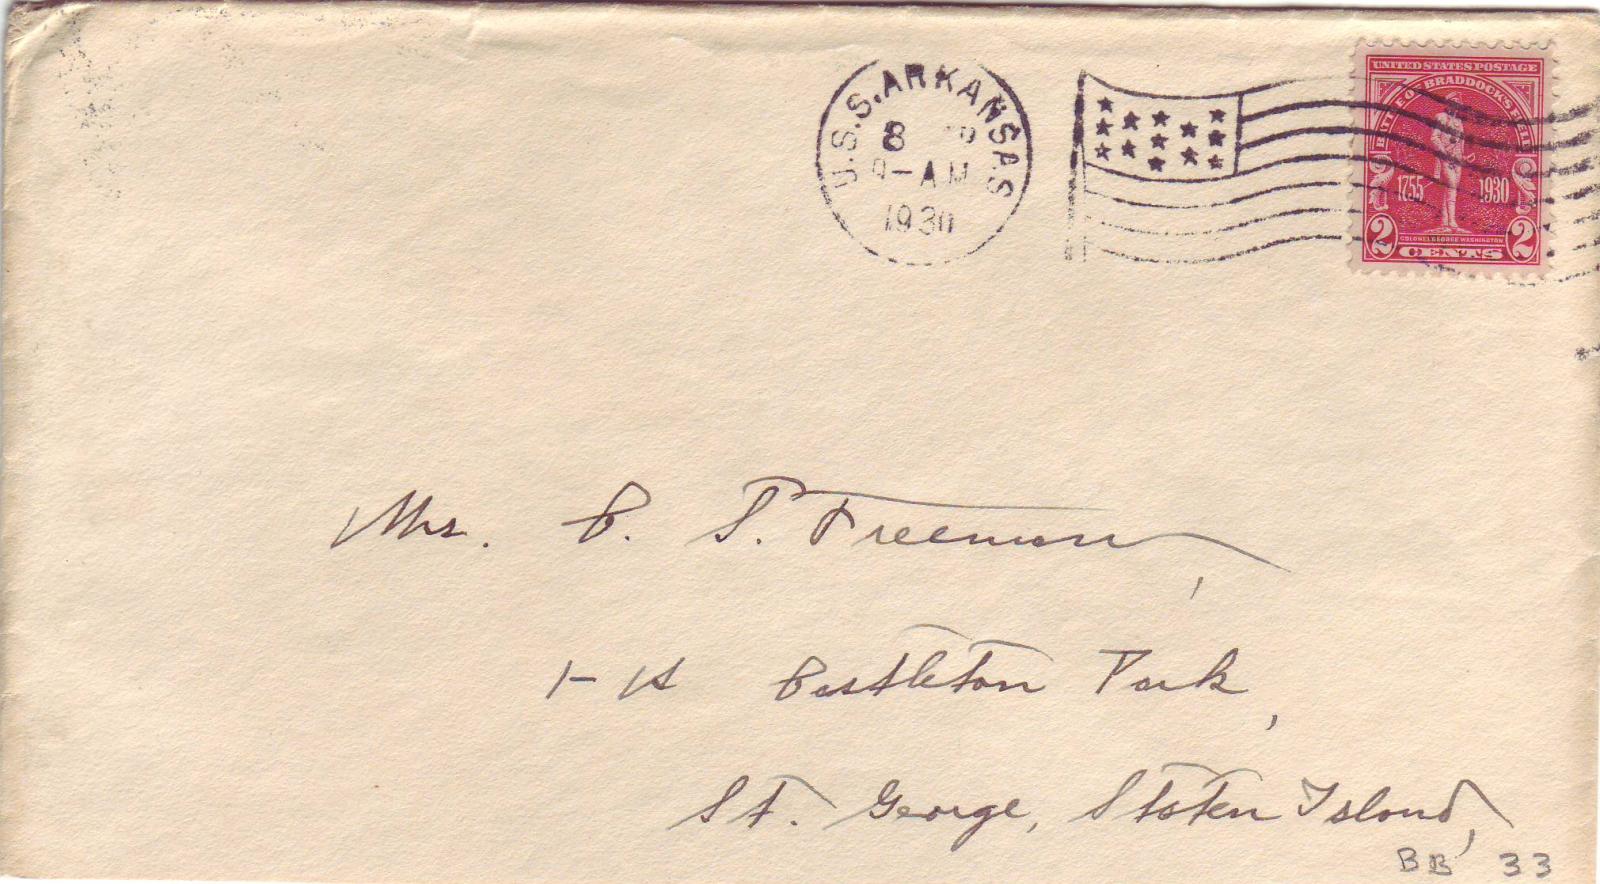 U.S.S. ARKANSAS
8
A.M
1930
UNITED STATES POSTAGE
BATTLE OF BRADDOCK'S FIELD
1755 1930
COLONEL GEORGE WASHINGTON
2 CENTS 2
Mrs. C. S. Freeman,
1-H Castleton Park,
St. George, Staten Island,
BB 33